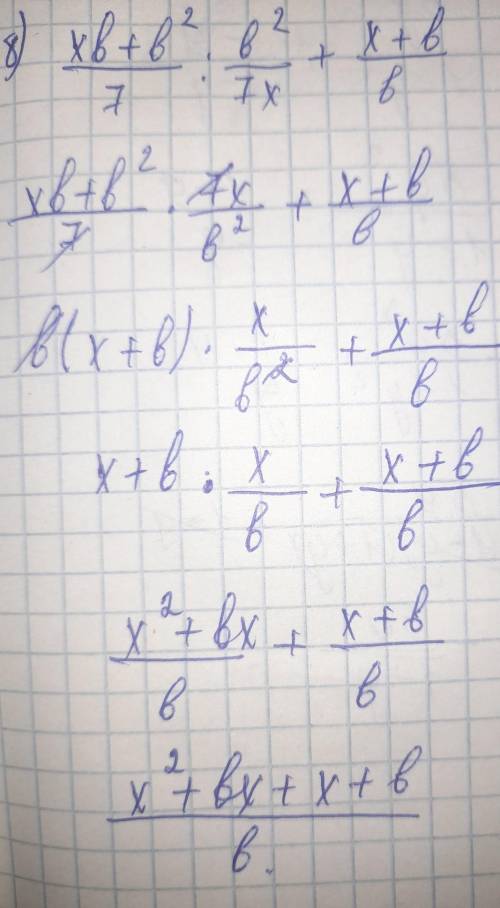 8) (xв+в²)/7 : в²/7x + (x+в)/в
(xв+в²)/7 · 7x/в² + (x+в)/в
в(x+в) · x/в² + (x+в)/в
x+в · x/в + (x+в)/в
(x²+вx)/в + (x+в)/в
(x²+вx+x+в)/в.